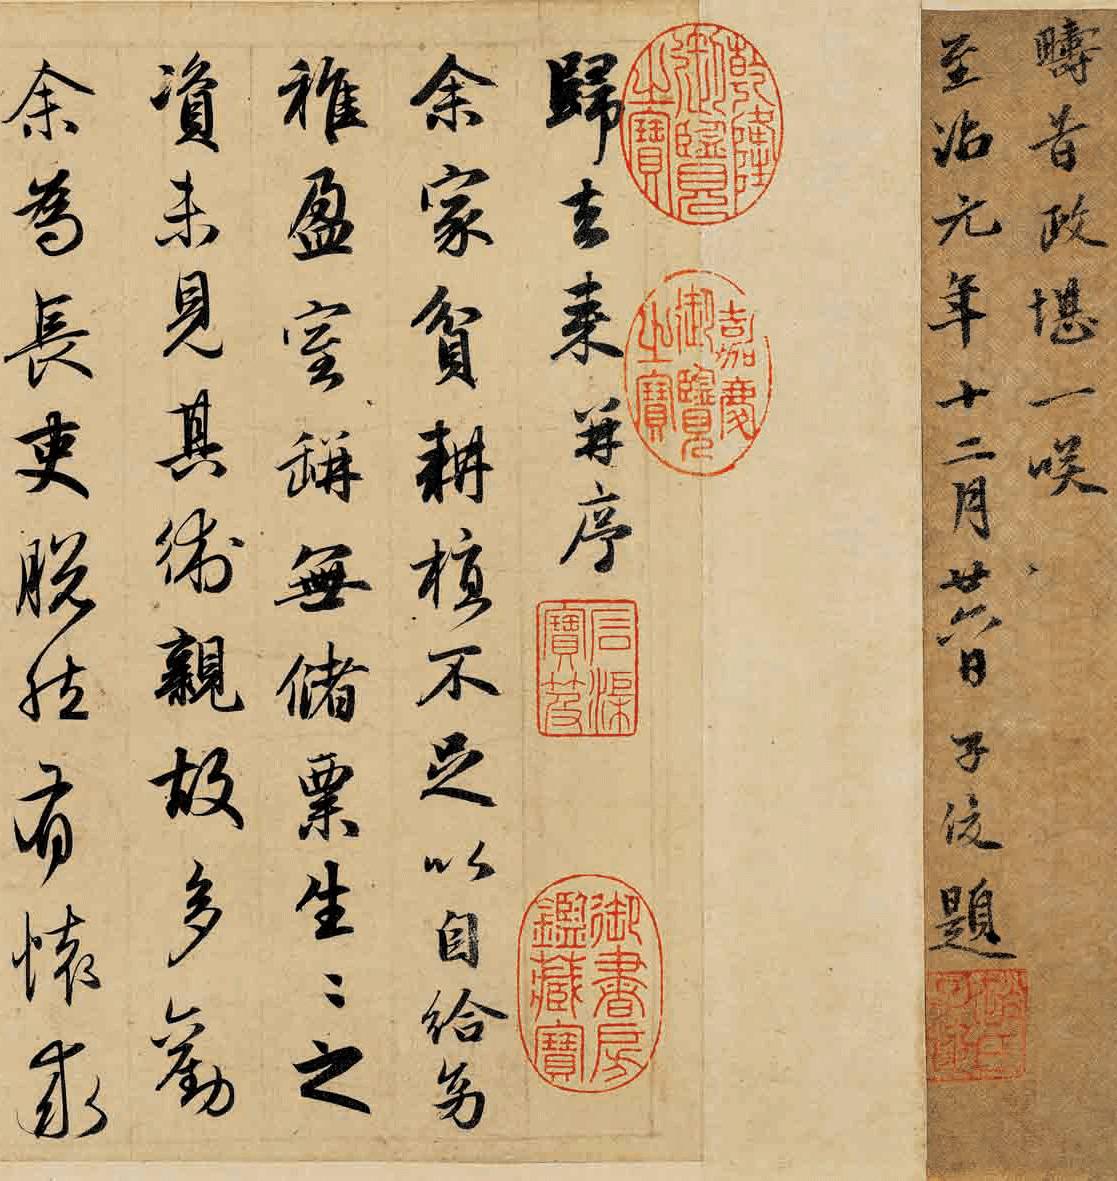 疇昔政堪一咲
至治元年十二月廿六日子俊題
乾隆御覽之寶
嘉慶御覽之寶
歸去来并序
石渠寶笈
御書房鑑藏寶
余家貧耕植不足以自給幼
稚盈室缾無儲粟生〻之
資未見其術親故多勸
余為長吏脱然有懷求